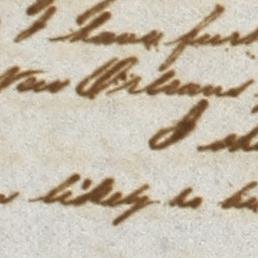 I have furt
New Orleans
I sh
likely to be